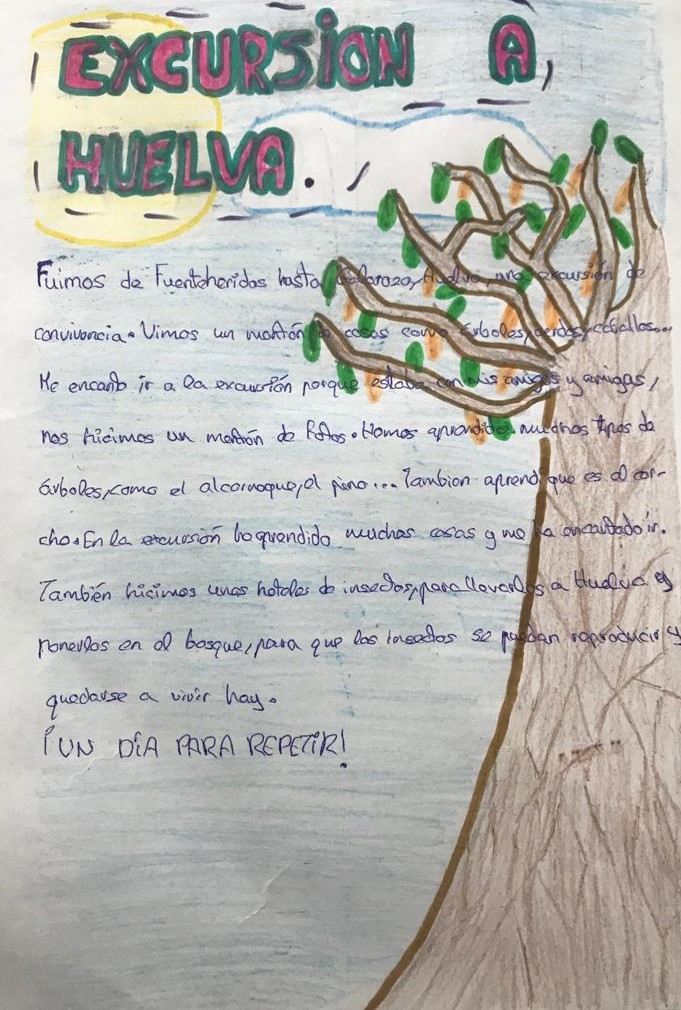 EXCURSION A,
HUELVA.
Fuimos de Fuenteheridos hasta Galaroza, Huelva, una excursión de
convivencia. Vimos un montón de cosas como árboles, cerdos, caballos...
Me encantó ir a la excursión porque estaba con mis amigos y amigas,
nos hicimos un montón de fotos. Hemos aprendido muchos tipos de
árboles, como el alcornoque, el pino... Tambien aprendí que es el cor-
cho. En la excursión he aprendido muchas cosas y me ha encantado ir.
También hicimos unos hoteles de insectos, para llevarlos a Huelva y
ponerlos en el bosque, para que los insectos se puedan reproducir y
quedarse a vivir hay.
¡UN DÍA PARA REPETIR!